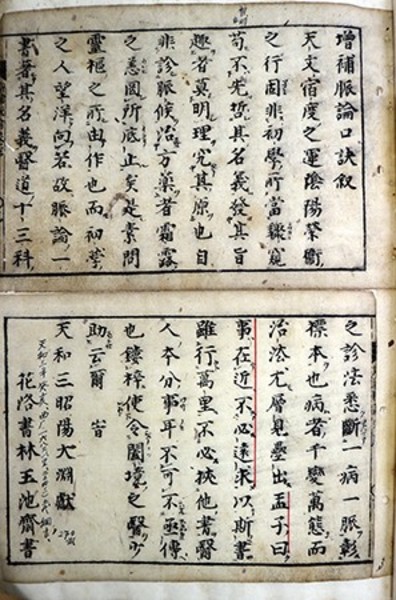 增補脈論口訣叙
天文宿度之運陰陽榮衞
之行固非初學所當驟窺
苟不先哲其名義發其旨
趣者莫明理究其原也自
非診脈候治方藥者霜露
之悉罔所底止矣是素問
靈樞之所由作也而初學
之人望洋向若故脈論一
書著其名義醫道十三科
之診法悉斷一病一脈彰
標本也病者千變萬態而
治法尤層見疊出孟子曰
事在近不必遠求以斯書
雖行萬里不必挾他書醫
人本分事耳不可不亟傳
也鏤樟使令闔境之醫少
助云爾 旹
天和三昭陽大淵獻
花洛書林玉池齋書